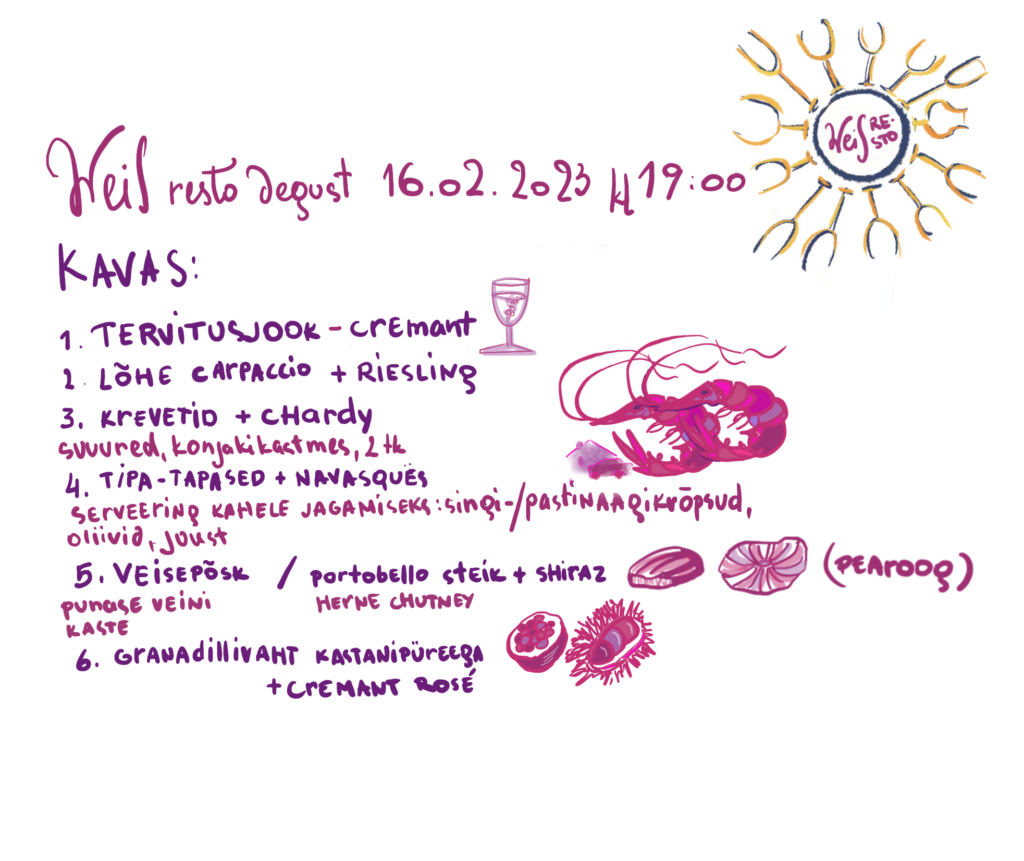 Weis RE-
STO
Weis resto degust 16.02.2023 kl 19:00
KAVAS:
1. TERVITUSJOOK - CREmant
2. LÕHE CARPACCIO + RIESLING
3. KREVETID + CHARDY
suuured, konjakikastmes, 2 tk
4. TIPA-TAPASED + NAVASQUËS
SERVEERING KAHELE JAGAMISEKS: singi-/pastiNAAgikrõpsud,
oliivid, juust
5. VEISEPÕSK / portobello steik + SHIRAZ (PEAROOG)
punase VEINI HERNE CHUTNEY
KASTE
6. GRANAdillivAHT KASTANIPÜREEGA
+ CREMANT ROSÉ